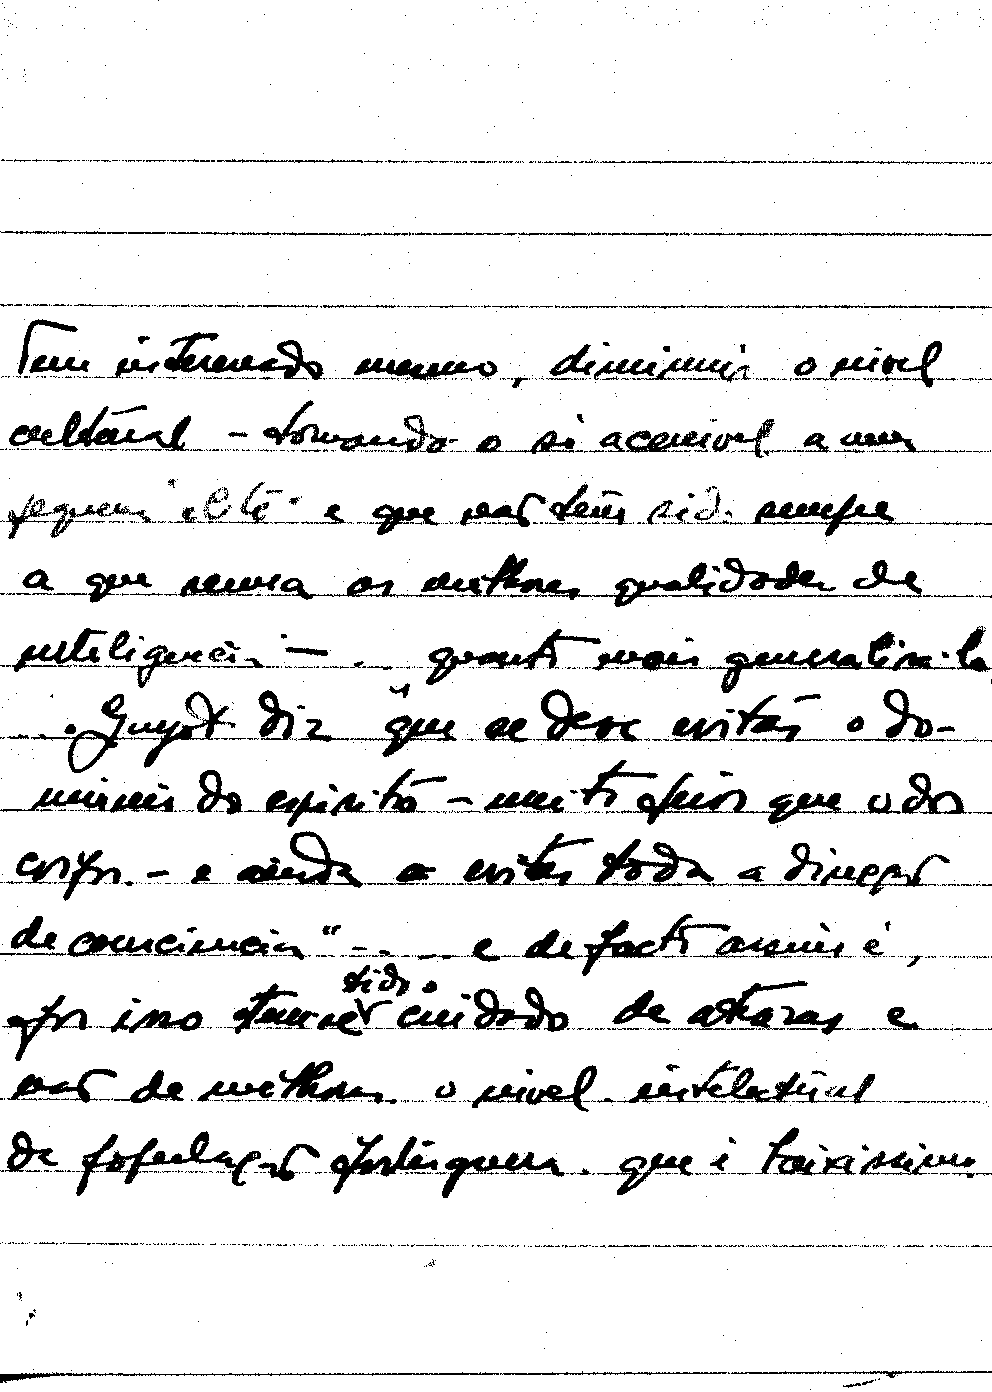 Tem interessado mesmo, diminuir o nivel
cultural – tornando-o só acessivel a uma
pequena "elite" e que não tem sido sempre
a que reune as melhores qualidades de
inteligencia — ... quanto mais generalisa-la
.... Guyot diz "que se deve evitar o do-
minio do espirito – muito peior que o dos
corpos – e ainda a evitar toda a direcção
de consciencia" .... e de facto assim é,
por isso tem-se tido o cuidado de atrazar e
não de melhorar o nivel intelectual
da população portuguesa que é baixissimo